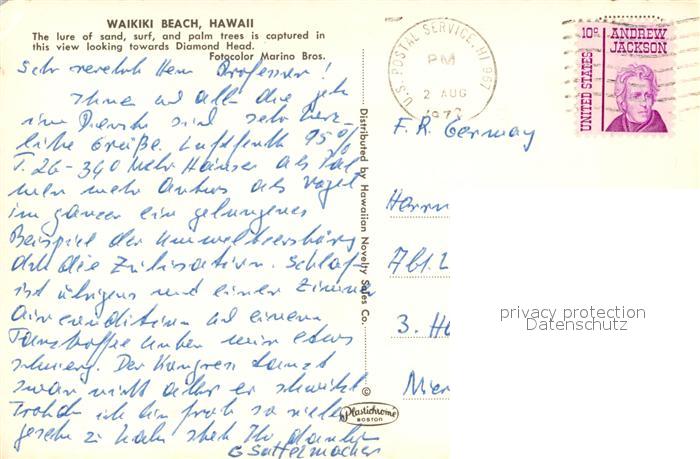 WAIKIKI BEACH, HAWAII
The lure of sand, surf, and palm trees is captured in
this view looking towards Diamond Head.
Fotocolor Marino Bros.
Sehr verehrter Herr Professor!
Ihnen und alle die
im Dienste sind sehr herz-
liche Grüße. Luftfeucht 95%
T. 26-340 Mehr Häuser als Pal-
men mehr Autos als Vögel
im ganzen ein gelungenes
Beispiel der Umweltzerstörg
durch die Zivilisation. Schlaf-
ist übrigens mit einer Zimmer
aircondition und einem
etwas
schwierig. Der Kongress tanzt
zwar nicht aber er schwitzt
Trotzdem ich bin froh so vieles
gesehen zu haben Ihr dankb
G Sattermacher
Distributed by Hawaiian Novelty Sales Co.
©
Plastichrome
BOSTON
U.S. POSTAL SERVICE, HI 967
PM
2 AUG
197
10c
ANDREW
JACKSON
UNITED STATES
F. R. Germany
Herrn
Abt. L
3. H
privacy protection
Datenschutz